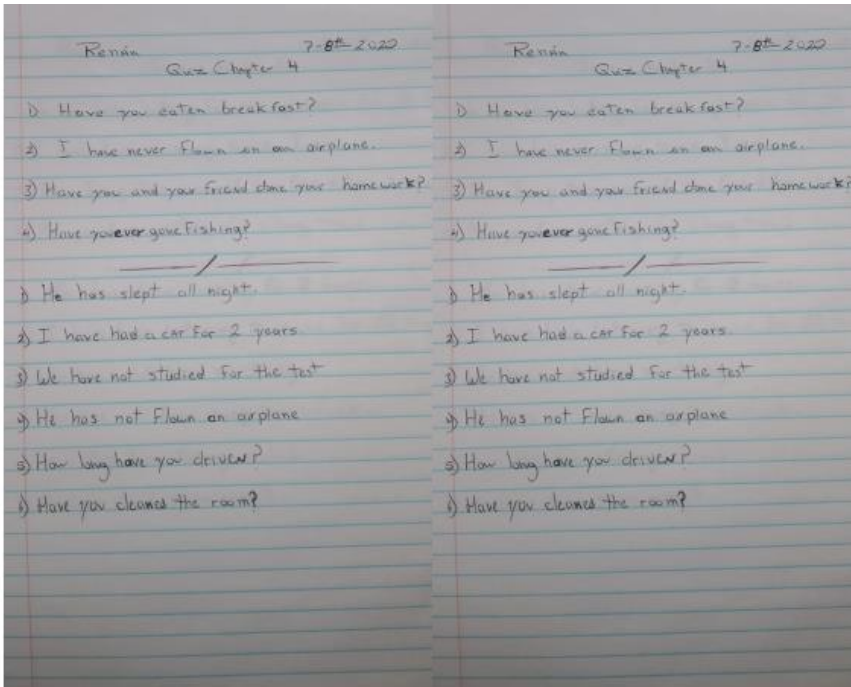 Renán 7-8th-2020
Quiz Chapter 4
1) Have you eaten breakfast?
2) I have never Flown an airplane.
3) Have you and your Friend done your homework?
4) Have you ever gone Fishing?
1) He has slept all night.
2) I have had a car For 2 years
3) We have not studied For the test
4) He has not Flown an airplane
5) How long have you driven?
6) Have you cleaned the room?
Renán 7-8th-2020
Quiz Chapter 4
1) Have you eaten breakfast?
2) I have never Flown an airplane.
3) Have you and your Friend done your homework?
4) Have you ever gone Fishing?
1) He has slept all night.
2) I have had a car For 2 years
3) We have not studied For the test
4) He has not Flown an airplane
5) How long have you driven?
6) Have you cleaned the room?